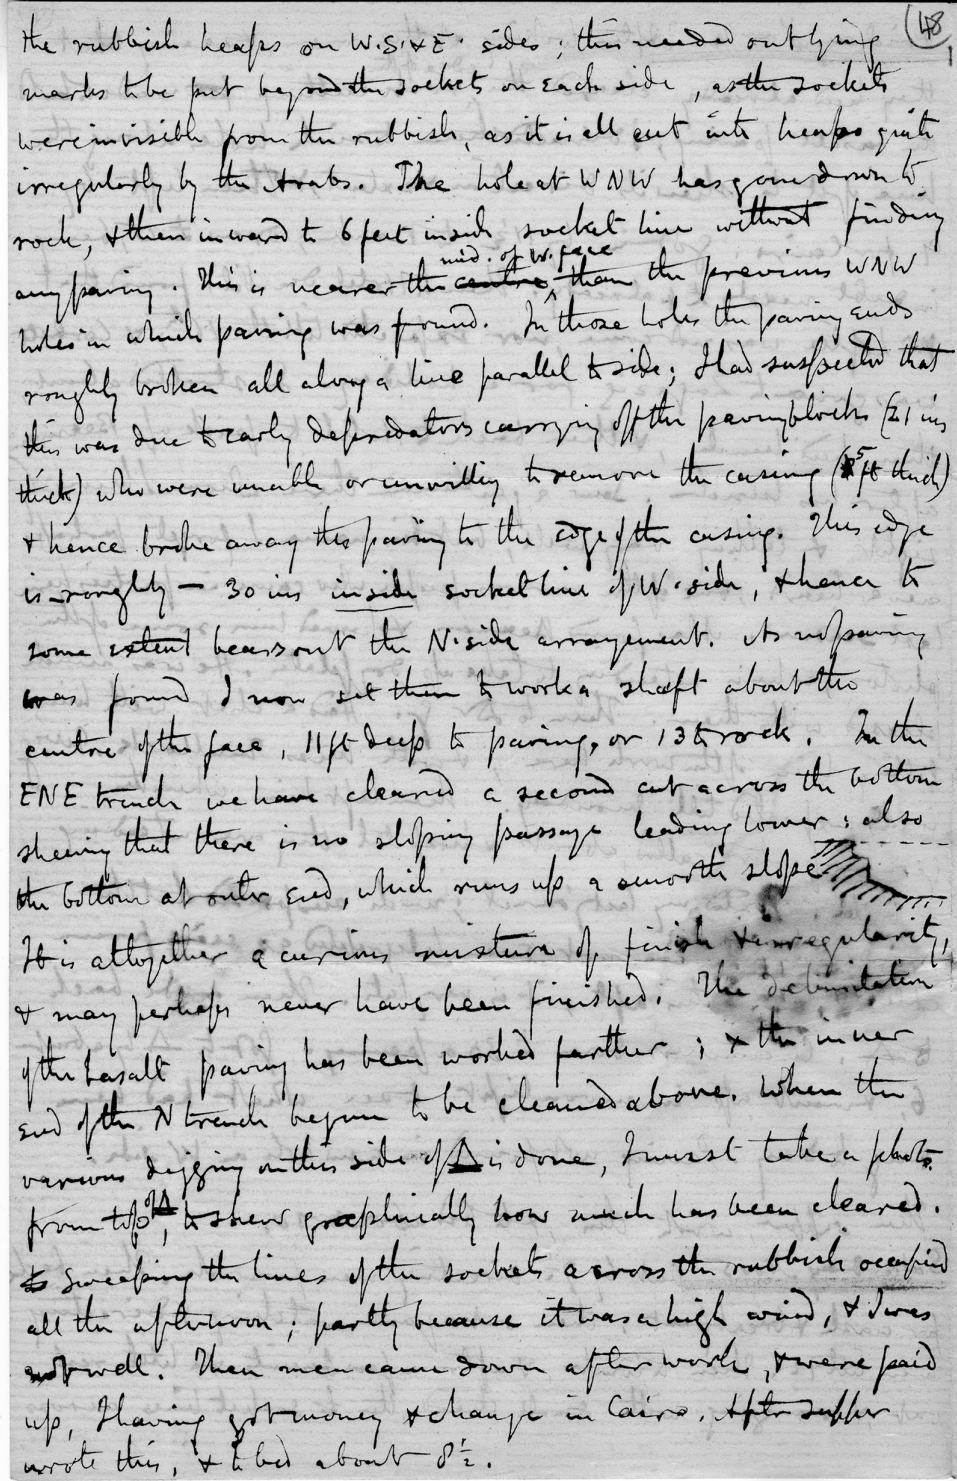 48
the rubbish heaps on W. S. & E. sides; this needed outlying
marks to be put beyond the sockets on each side, as the sockets
were invisible from the rubbish, as it is all cut into heaps quite
irregularly by the Arabs. The hole at WNW has gone down to
rock, & then inward to 6 feet inside socket line without finding
mid. of W. face
any paving. This is nearer the centre than the previous WNW
holes in which paving was found. In those holes the paving ends
roughly broken all along a line parallel to side; I had suspected that
this was due to early depredators carrying off the paving blocks (21 ins
thick) who were unable or unwilling to remove the casing (5 ft thick)
& hence broke away the paving to the edge of the casing. This edge
is roughly – 30 ins inside socket line of W. side, & hence to
some extent bears out the N. side arrangement. As no paving
was found I now set them to work a shaft about the
centre of the face, 11 ft deep to paving, or 13 to rock. In the
ENE trench we have cleared a second cut across the bottom
shewing that there is no sloping passage leading lower; also
the bottom at outer end, which runs up a smooth slope
It is altogether a curious mixture of finish & irregularity,
& may perhaps never have been finished. The delimitation
of the basalt paving has been worked further; & the inner
end of the N trench begun to be cleaned above. When the
various digging on this side of △ is done, I must take a photo.
of △
from top, to shew graphically how much has been cleared.
Sweeping the lines of the sockets across the rubbish occupied
all the afternoon; partly because it was a high wind, & I was
not well. Then men came down after work, & were paid
up, I having got money & change in Cairo. After supper
wrote this, & to bed about 8½.